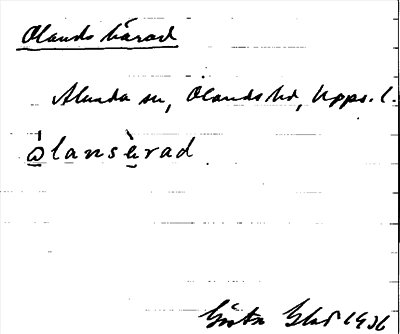 Olands härad
Alunda sn, Olands hd, Upps. l.
ώlansὲrad
Gösta
1936